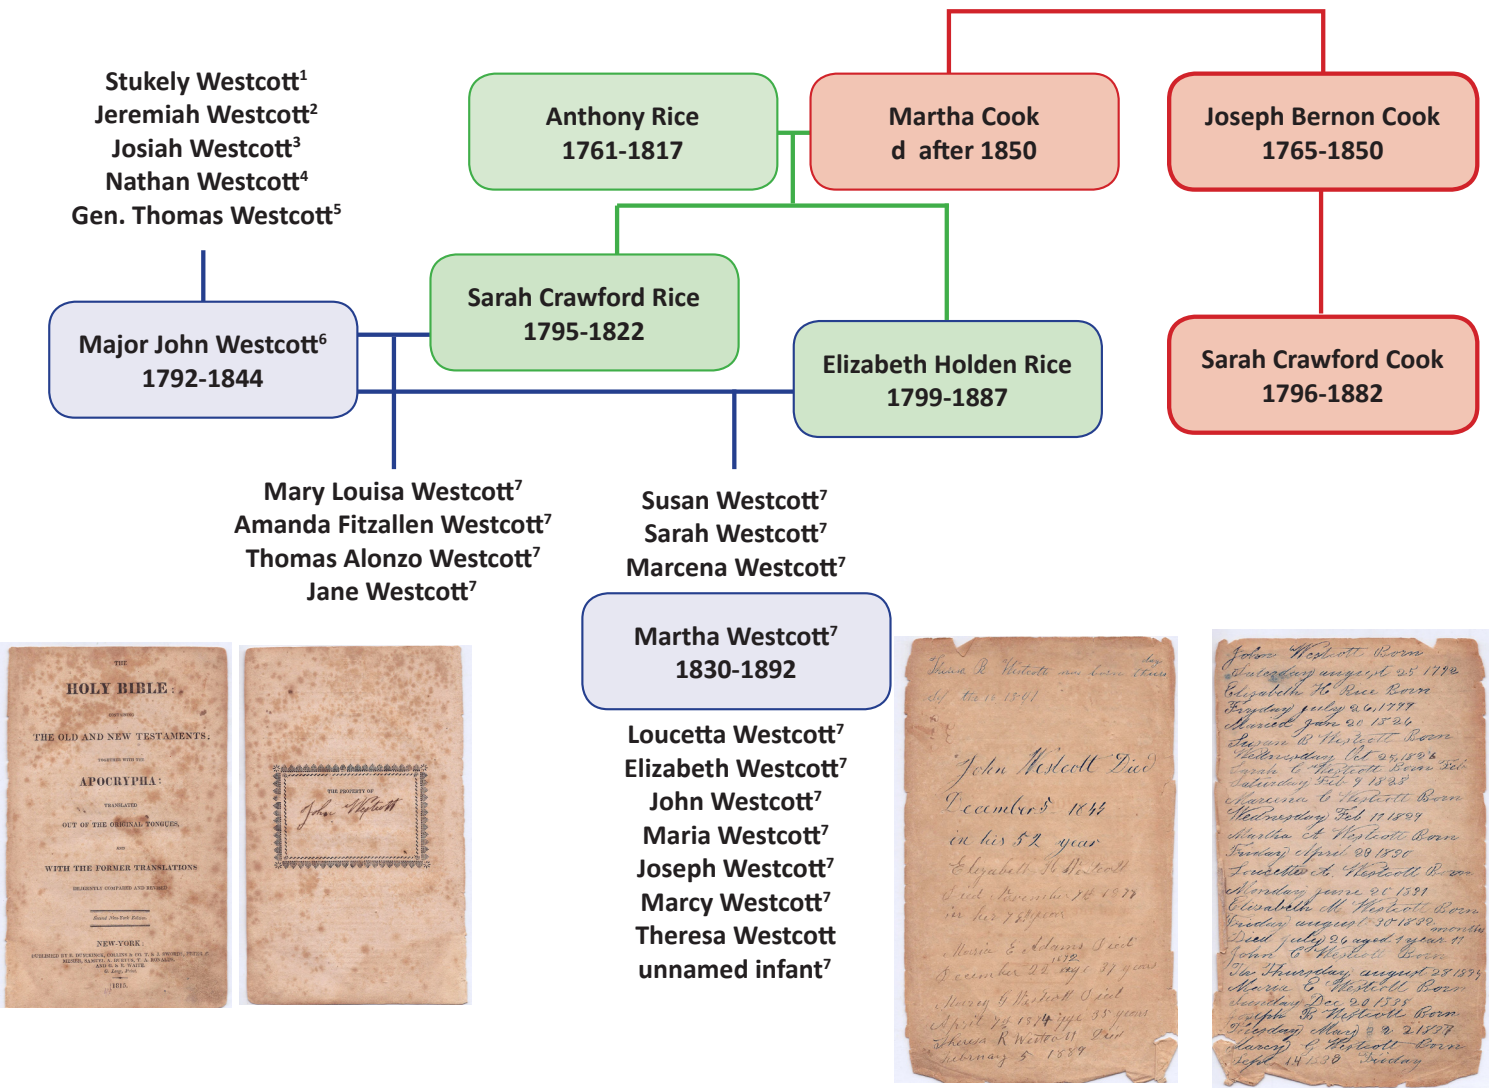 Stukely Westcott¹
Jeremiah Westcott²
Josiah Westcott³
Nathan Westcott⁴
Gen. Thomas Westcott⁵
Anthony Rice
1761-1817
Martha Cook
d after 1850
Joseph Bernon Cook
1765-1850
Sarah Crawford Rice
1795-1822
Major John Westcott⁶
1792-1844
Elizabeth Holden Rice
1799-1887
Sarah Crawford Cook
1796-1882
Mary Louisa Westcott⁷
Amanda Fitzallen Westcott⁷
Thomas Alonzo Westcott⁷
Jane Westcott⁷
Susan Westcott⁷
Sarah Westcott⁷
Marcena Westcott⁷
Martha Westcott⁷
1830-1892
Loucetta Westcott⁷
Elizabeth Westcott⁷
John Westcott⁷
Maria Westcott⁷
Joseph Westcott⁷
Marcy Westcott⁷
Theresa Westcott
unnamed infant⁷
THE
HOLY BIBLE:
CONTAINING
THE OLD AND NEW TESTAMENTS;
TOGETHER WITH THE
APOCRYPHA:
TRANSLATED
OUT OF THE ORIGINAL TONGUES,
AND
WITH THE FORMER TRANSLATIONS
DILIGENTLY COMPARED AND REVISED
NEW-YORK:
THE PROPERTY OF
John Westcott
B Westcott was born
day
John Westcott Died
December 5 1844
in his 52 year
Elizabeth H Westcott
Died November 7th
in her year
Maria E Adams Died
December 22 1872 age 37 years
Marcy G Westcott Died
April 7th 1874 age 35 years
Theresa R Westcott Died
February 5 1889
John Westcott Born
Saturday august 25 1792
Elizabeth H Rice Born
Fryday july 26, 1799
Maried Jan 20 1826
Susan B Westcott Born
Wednesday Oct 25, 1826
Sarah C Westcott Born Feb
Saturday Feb 9 1828
Marcena C Westcott Born
Wednesday Feb 1829
Martha A Westcott Born
Friday April 1830
Loucetta A. Westcott Born
Monday june 20 1831
Elizabeth M Westcott Born
Friday august 30 1832
months
Died July 26 aged 1 year 11
John C Westcott Born
Thursday august 28 1834
Maria E Westcott Born
Sunday Dec 20 1835
Joseph B Westcott Born
Tuesday May 2 1837
Marcy G Westcott Born
Sept 14 1838 Friday